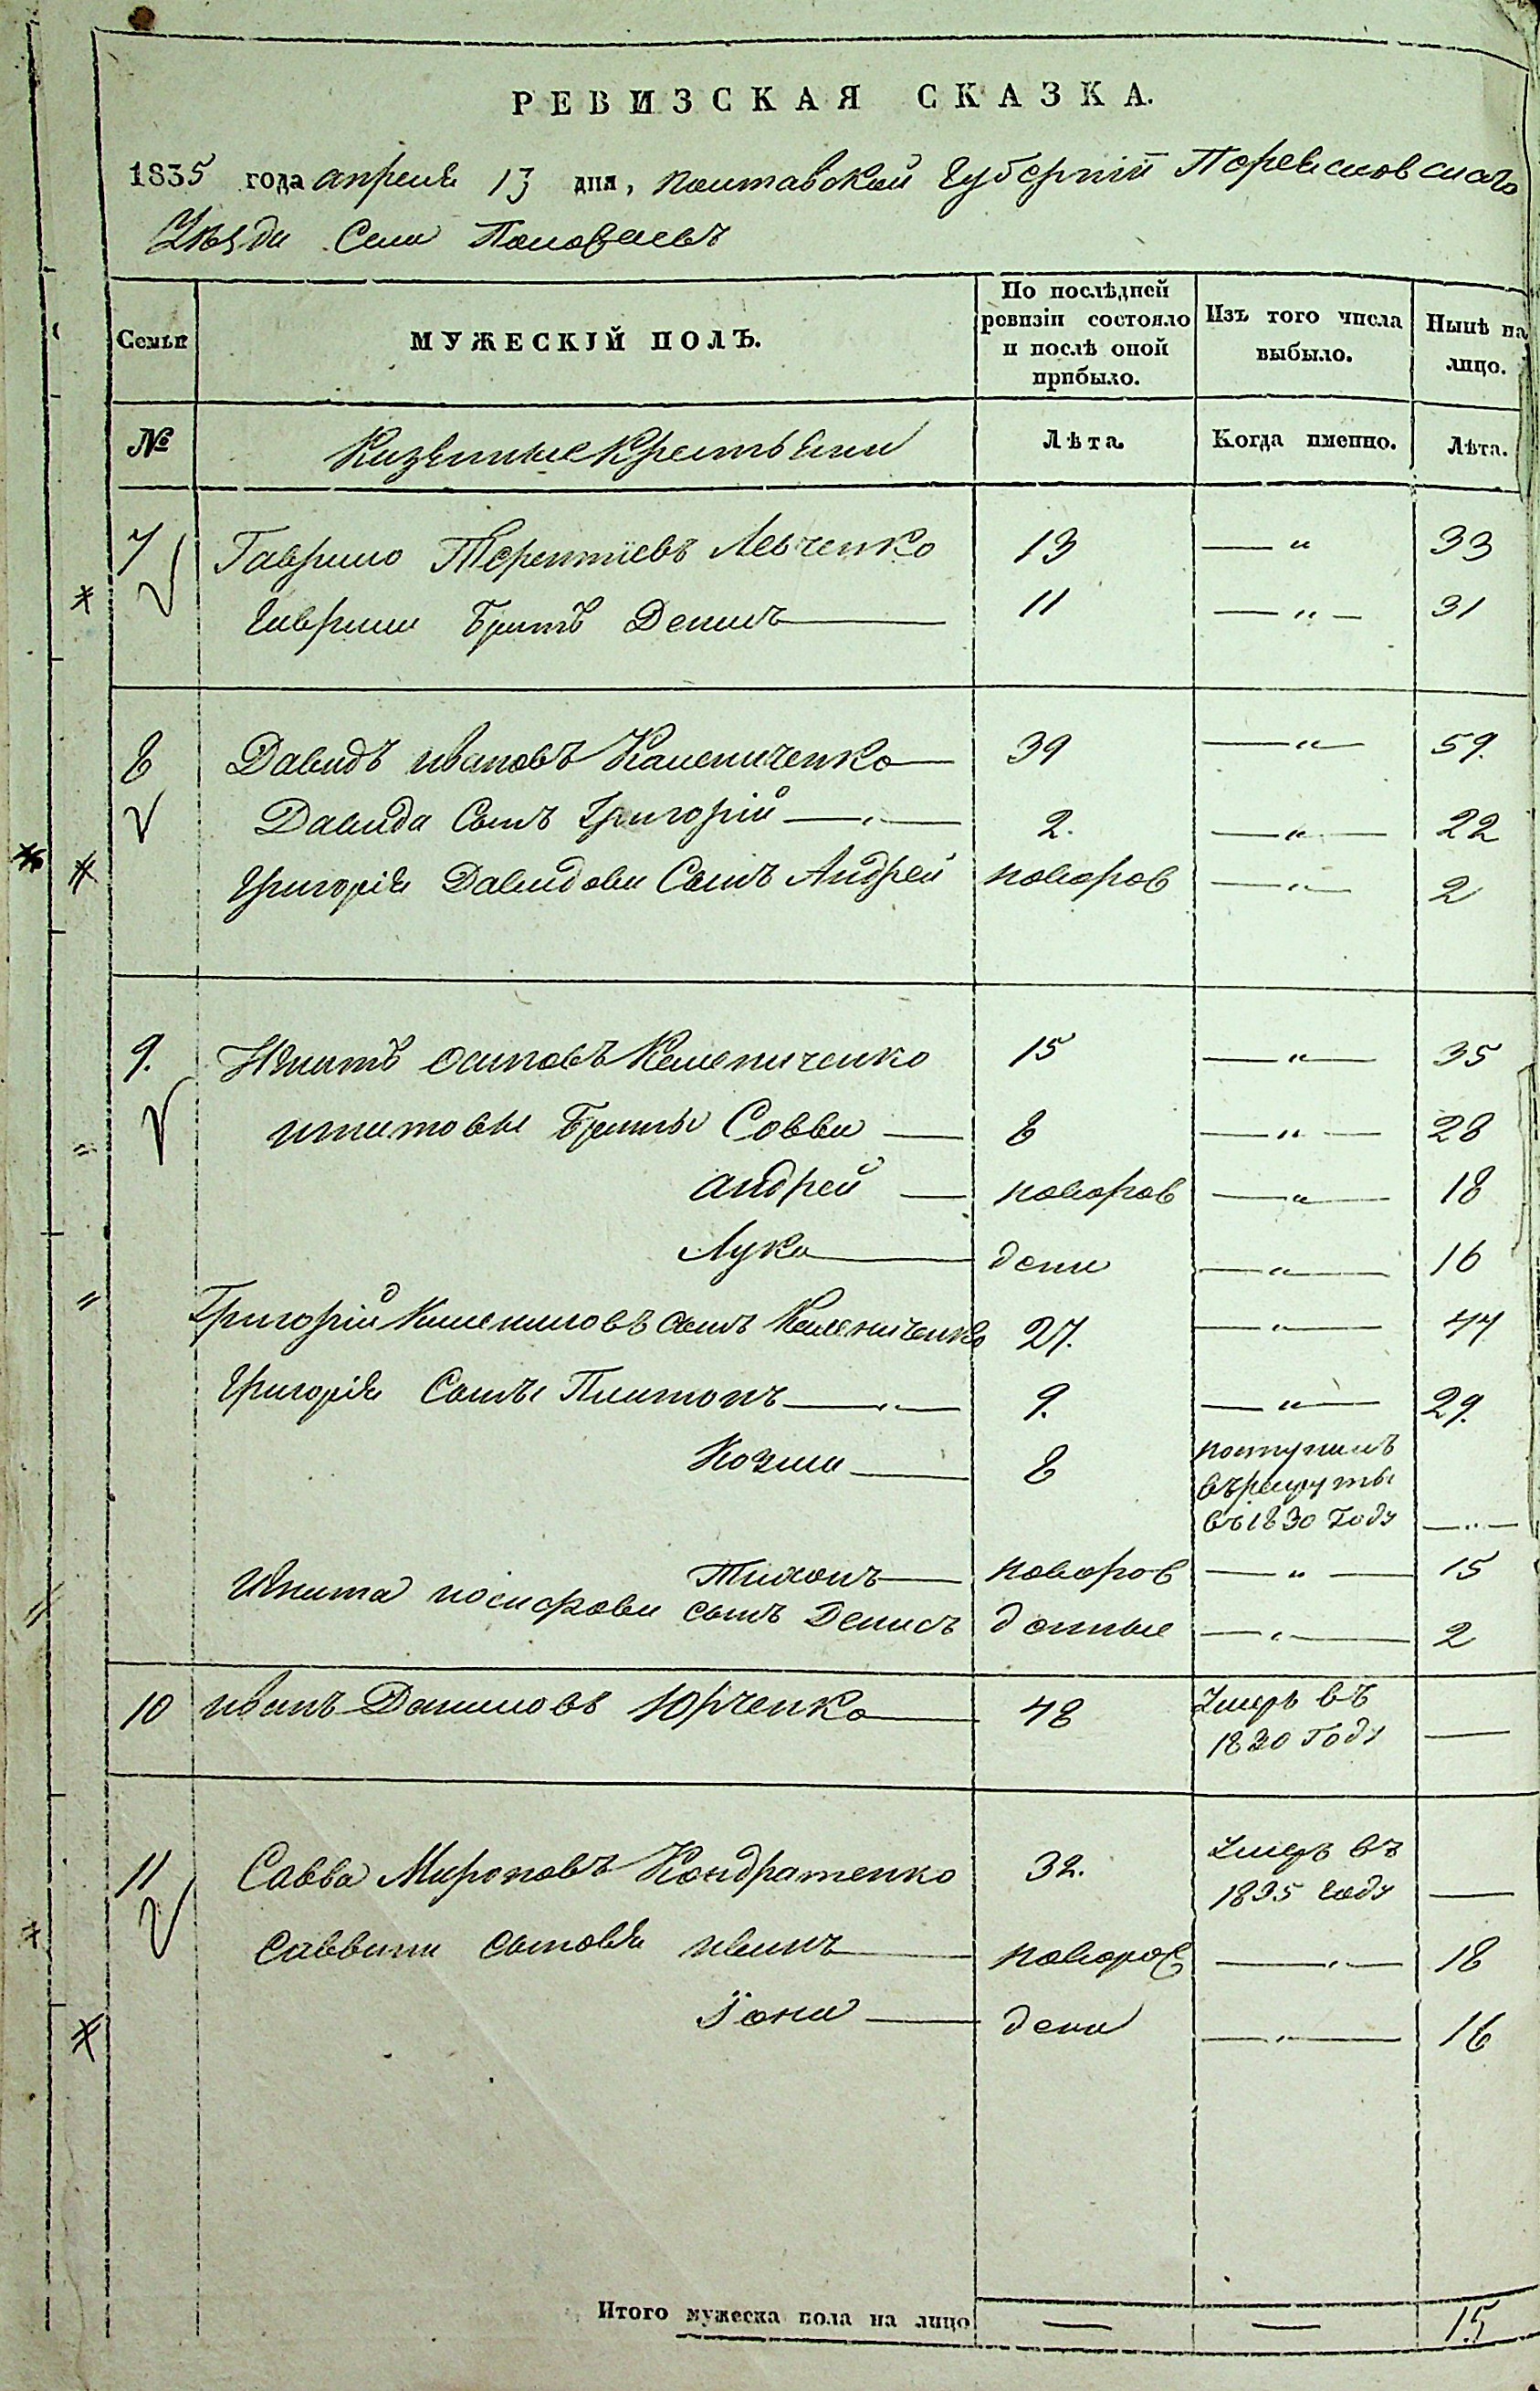 РЕВИЗСКАЯ СКАЗКА.
1835 года апреля 13 дня, Полтавской Губерніи Переясловскаго
Уѣзда Села
Семьи МУЖЕСКІЙ ПОЛЪ. По послѣдней ревизіи состояло и послѣ оной прибыло. Изъ того числа выбыло. Нынѣ на лицо.
№ Казенные Крестьяни Лѣта. Когда именно. Лѣта.
7 Гаврило Терентіевъ Левченко 13 — " 33
Гаврила Братъ Демидъ 11 — " — 31
8 Давидъ Ивановъ Калениченко 39 — " — 59.
Давида Сынъ Григорій — " — 2. — " — 22
Григорія Давидова Сынъ Андрей новоров — " — 2
9. Игнатъ Осиповъ Калениченко 15 — " — 35
Игнатовы Браты Савва — 8 — " — 28
Андрей — новоров — " — 18
Лука — дени — " — 16
Григорій сынъ Калениченко 27. — " — 47
Григорія Сыны Платонъ — " — 9. — " — 29.
Козма — 8 поступилъ
въ рекруты
въ 1830 Году — " —
Тихонъ — новоров — " — 15
Игната Іосифова сынъ Денисъ донные — " — 2
10 Иванъ Даниловъ Юрченко — 48 Умеръ въ
1830 Году —
11 Савва Мироновъ Кондратенко 32. Умеръ въ
1835 Году —
Саввины Сыновья Иванъ — новоров — " — 18
Іона — дени — " — 16
Итого мужеска пола на лицо — — 15